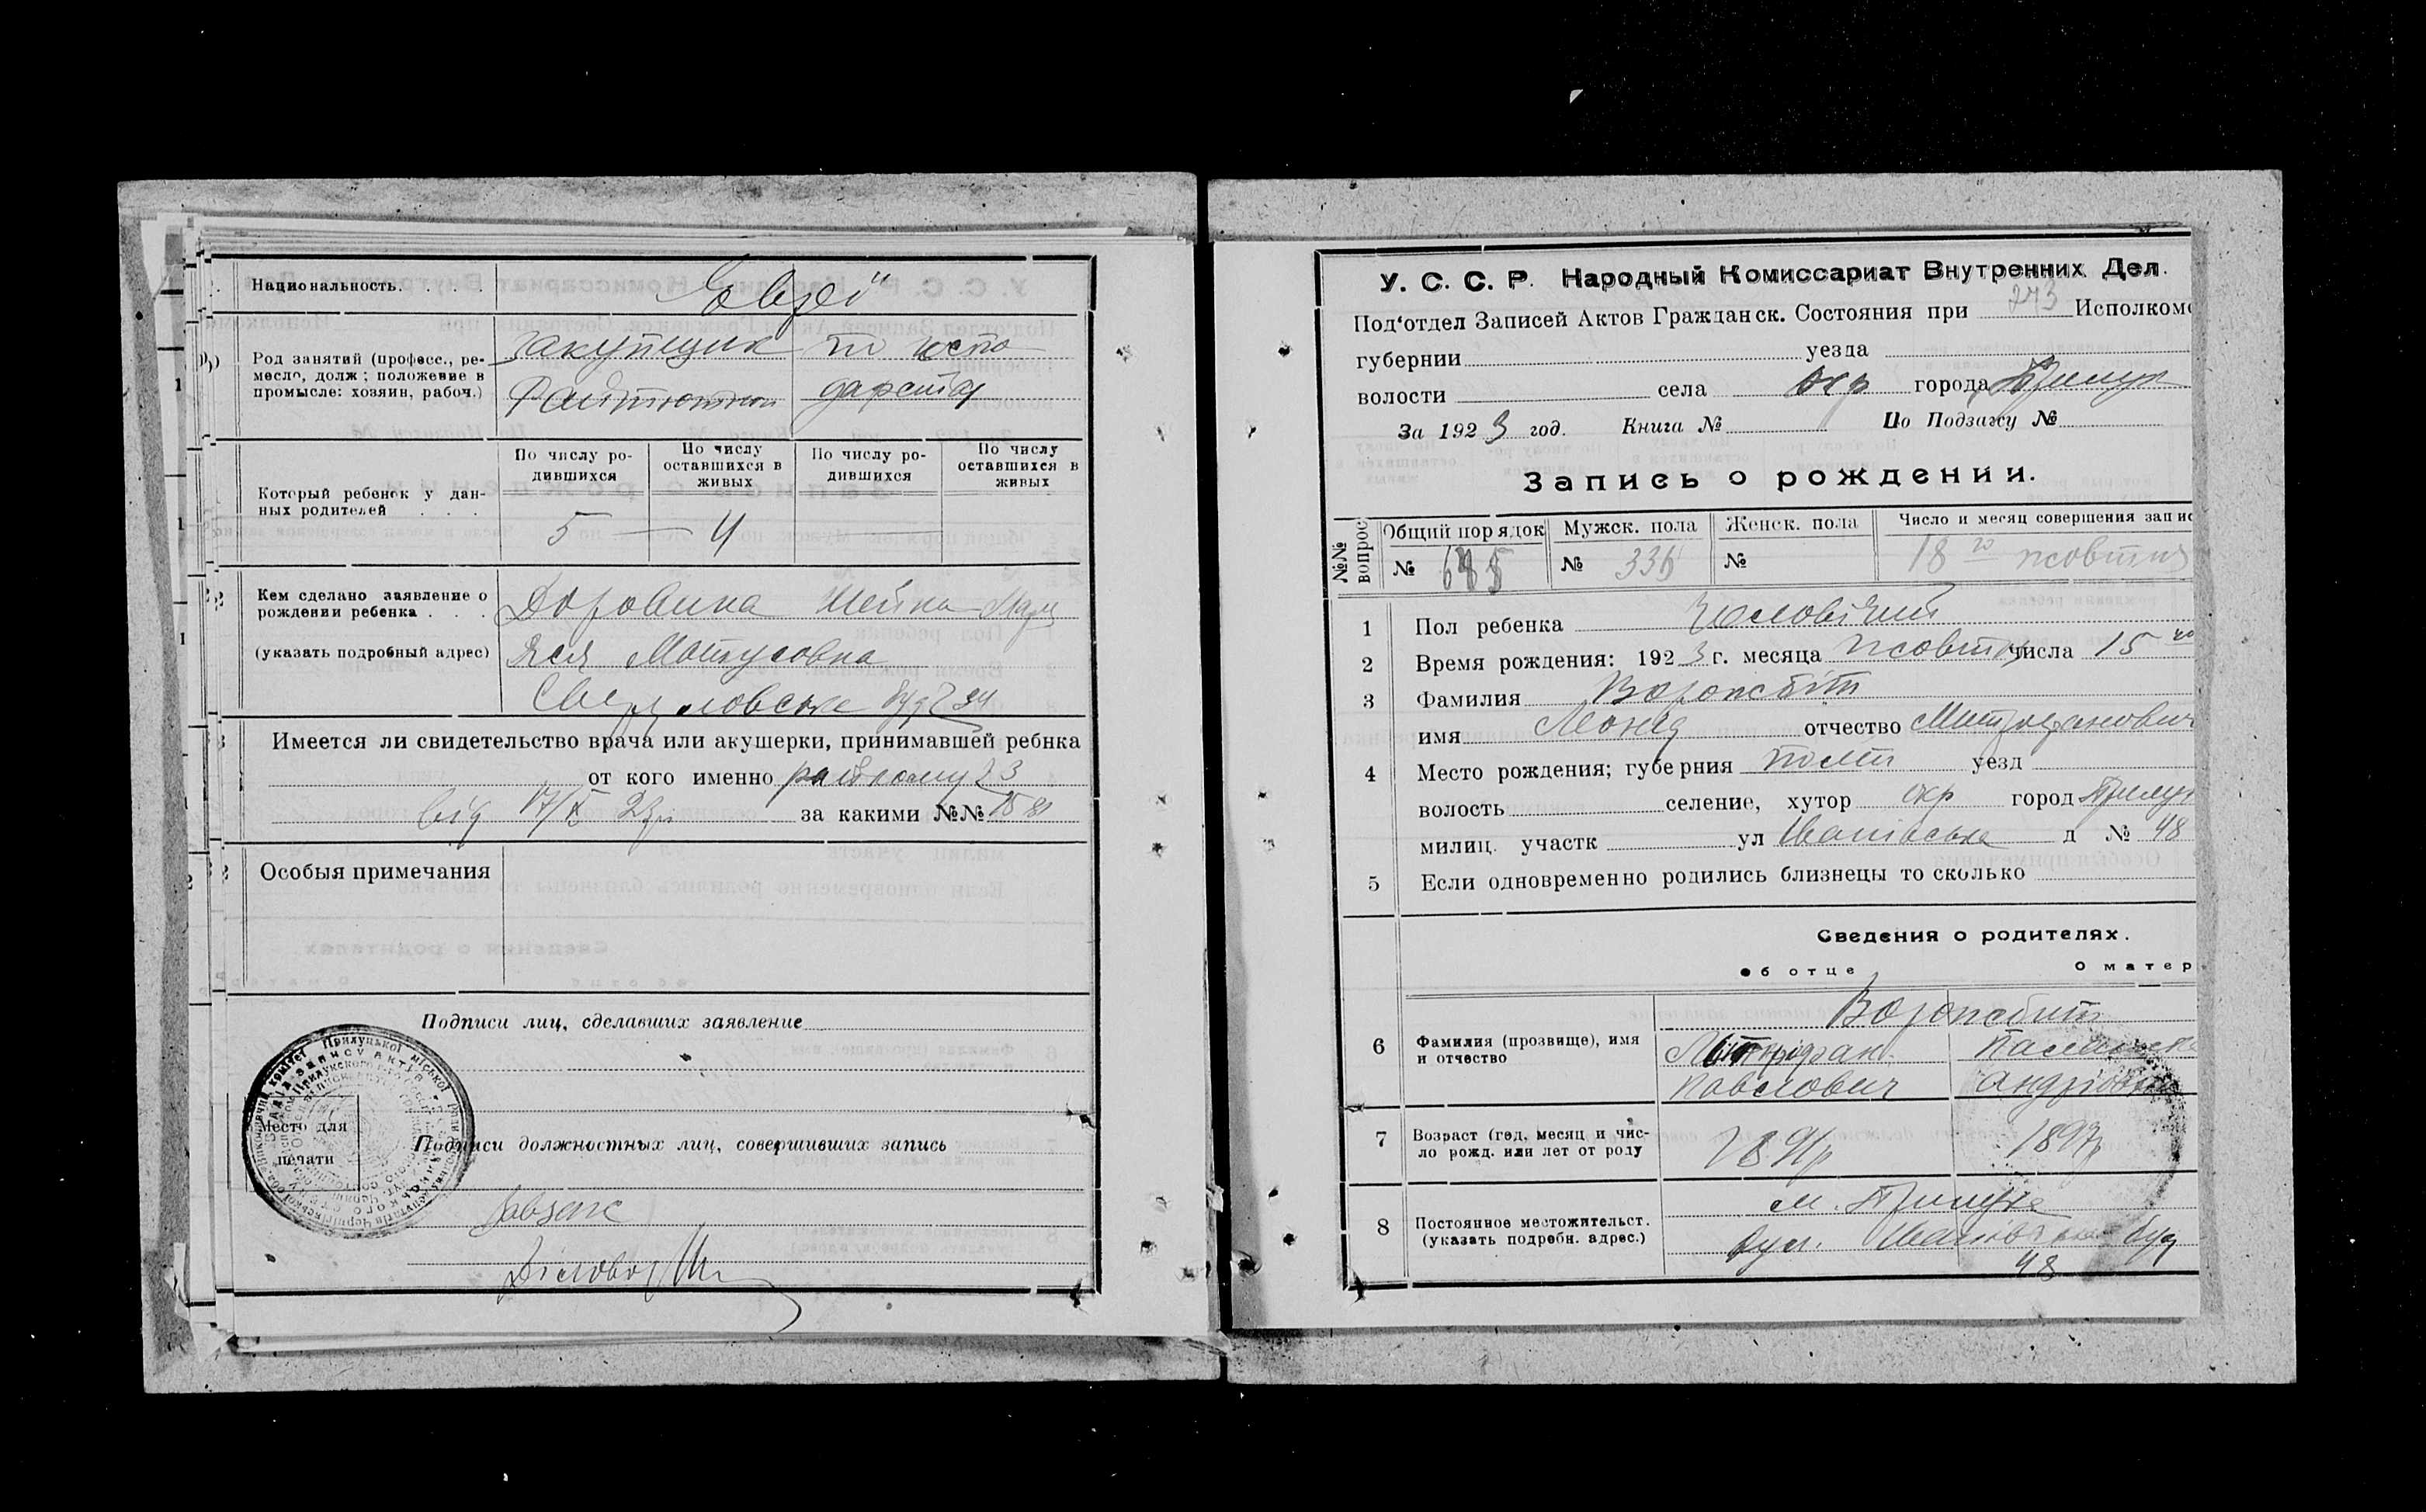 Национальность. . . .
Род занятий (професс., ре-
месло, долж; положение в
промысле: хозяин, рабоч.)
закупщик по госпо-
дарству
Который ребенок у дан-
ных родителей . . .
По числу ро-
дившихся
По числу
оставшихся в
живых
По числу ро-
дившихся
По числу
оставшихся в
живых
5 — 4
Кем сделано заявление о
рождении ребенка . . .
(указать подробный адрес)
Матусовна
Свердловська буд 24
Имеется ли свидетельство врача или акушерки, принимавшей ребнка
от кого именно
від 17/X 23р за какими №№
Особыя примечания
Подписи лиц, сделавших заявление
Место для
печати
Подписи должностных лиц, совершивших запись
Завзагс
Діловод
У. С. С. Р. Народный Комиссариат Внутренних Дел.
Под‘отдел Записей Актов Гражданск. Состояния при 243 Исполком
губернии уезда
волости села окр города Прилук
За 1923 год. Книга № По Подзагсу №
Запись о рождении.
№№
вопрос
Общий порядок
Мужск. пола
Женск. пола
Число и месяц совершения запис
№ № 336 № 18го жовтня
1 Пол ребенка чоловічий
2 Время рождения: 1923 г. месяца жовтня числа 15го
3 Фамилия Воронсбіт
имя Леонід отчество Митрофанович
4 Место рождения; губерния Полт уезд
волость селение, хутор окр город Прилук
милиц. участк ул Іванівська д № 48
5 Если одновременно родились близнецы то сколько
Сведения о родителях.
об отце О матер
6 Фамилия (прозвище), имя
и отчество
Воронсбит
Митрофан
Павлович
Андріївна
7 Возраст (год, месяц и чис-
ло рожд. или лет от роду
1891р 1897р
8 Постоянное местожительст.
(указать подробн. адрес.)
м. Прилука
вул. Іванівська буд
48